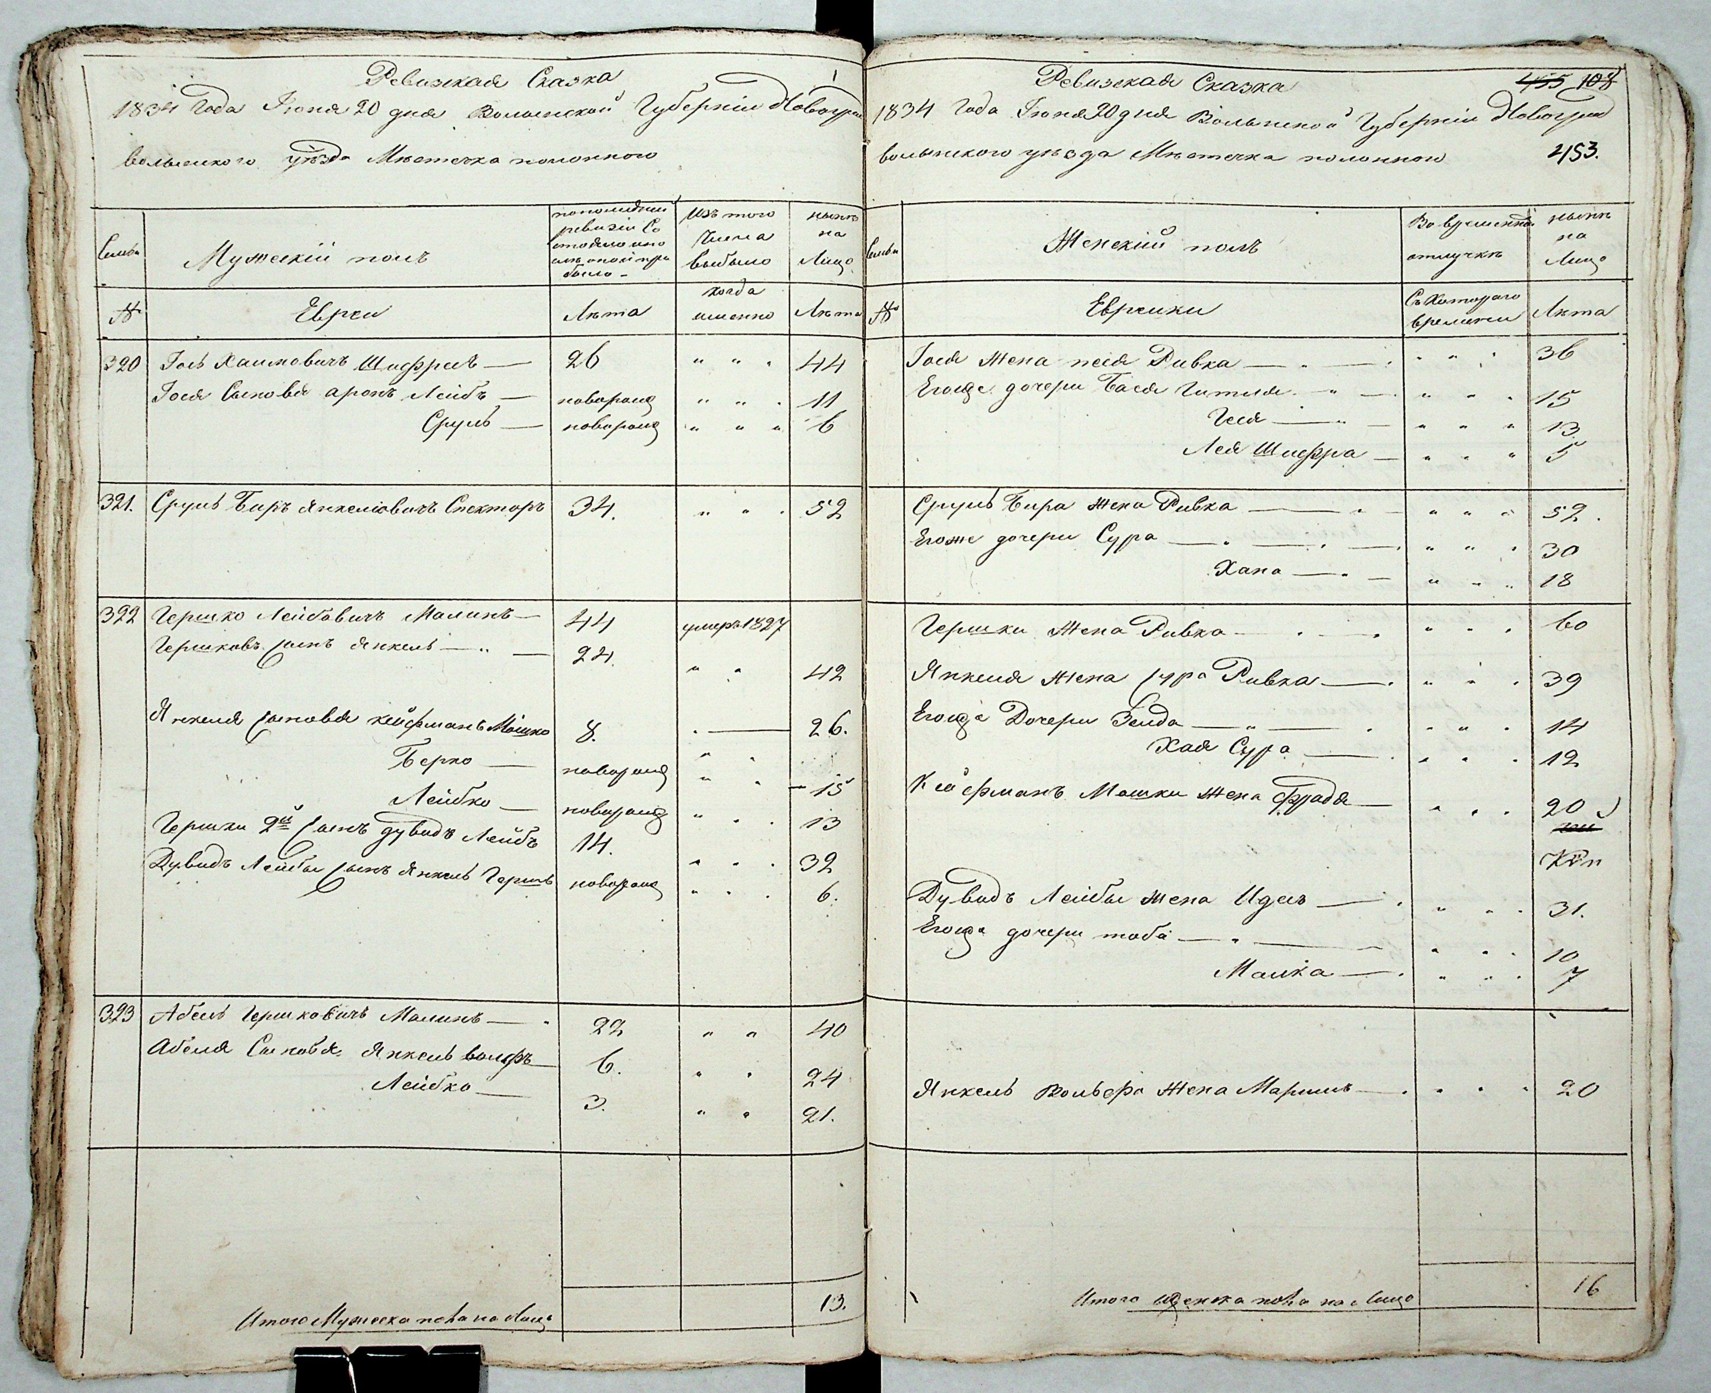 Ревизкая Сказка
1834 Года Іюня 20 дня Волынской Губерніи Новоград
волынского уѣзда Мѣстечка полонного
Семьи
Мужескій полъ
по последней
ревизіи Со
стояло и по
слѣ оной при
было
Изъ того
Числа
выбыло
нынѣ
на
Лицо
№
Евреи
Лѣта
когда
именно
Лѣта
320 Гось Хаимовичъ Шифрисъ — 26 " " " 44
Гося Сыновя аронъ Лейбъ —новорожд " " " 11
Сруль —новорожд " " " 6
321. Сруль Беръ Янкеліовичъ Спекторъ 34. " " " 52
322 Гершко Лейбовичъ Малинъ — 44 умеръ 1827
Гершковъ сынъ Янкель — " — 24. " " " 42
Янкеля сыновя кейфманъ Мошко 8. — 26.
Берко — новорожд " " — 15
Лейбко — новорожд " " " 13
Гершки 2й сынъ дувидъ Лейбъ 14. " " " 32
Дувидъ Лейбы сынъ Янкель Гершъ новорожд " " " 6.
323 Абель Гершковичъ Малинъ — 22 " " 40
Абеля Сыновя. Янкель волфъ 6. " " 24
Лейбко — 3. " " 21.
Итого Мужеска пола на Лицо 13.
Ревизкая Сказка
455 108
1834 Года Іюня 20 дня Волынской Губерніи Новоград
волынского уѣзда Мѣстечка полонного 453.
Семьи
Женскій полъ
Во временной
отлучкѣ
нынѣ
на
Лицо
№
Еврейки
Съ Котораго
времени
Лѣта
Гося Жена песя Ривка — " — " " " 36
Егоже дочери Бася Гитля — " — " " " 15
Геся — " — " " " 13
Лея Шифра — " " " 5
Сруль Бера Жена Ривка — " " " 52.
Егоже дочери Сура — " " " 30
Хана — " — " " " 18
Гершки Жена Ривка — " " " 60
Янкеля Жена Сура Ривка — " " " 39
Егоже Дочери Зельда — " " " 14
Хая Сура — " " " 12
Кейфманъ Мошки Жена Фрадя — " " " 20
Дувидъ Лейбы Жена Идесъ — " " " 31.
Егоже дочери тоба — " — " " " 10
Малка — " " " 7
Янкель Вольфа Жена Маріимъ — " " " 20
Итого Женска пола на Лицо 16